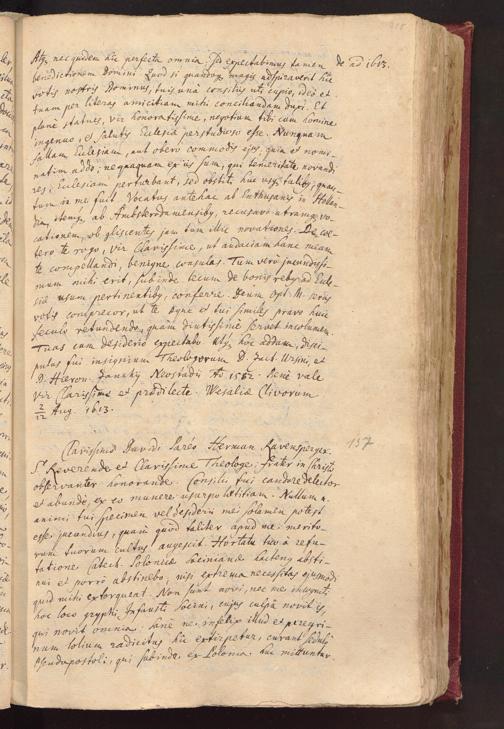 Atq; nec quidem hic perfecta omnia. Sed expectabimus tamen de ao 1613.
benedictionem Domini. Quod si quandoq; magis adspiraverit hic
votis nostris Dominus, tuis unà consiliis uti cupio, ideò et
tuam per literas amicitiam mihi conciliandam duxi. Et
planè statues, vir honoratissime, negotium tibi cum homine
ingenuo, et salutis Ecclesiae perstudioso esse. Nunquam
fallam Ecclesiam, aut obero commodis ejus, quin et nomi-
natim addo, nequaquam ex iis sum, qui temeritate novandi
res, Ecclesiam perturbant, sed obstiti huc usq; talib; quan-
tum in me fuit. Vocatus antehac ab Enthusanis in Hollan-
diam, item ab Ambsterdamensib; recusavi utramq; vo-
cationem, ob gliscentes jam tum illic novationes. De cae-
tero te rogo, vir Clarissime, ut audaciam hanc meam
te compellandi, benigne consulas. Tum verò jucundissi-
mum mihi erit, subinde tecum de bonis rebq; ad Eccle-
siae usum pertinentib; conferre. Deum opt. M. seriis
votis comprecor, ut te digne et tui similes pravo huic
seculo retundendo, quàm diutissimè servet incolumem.
Tuas cum desiderio expectabo. Atq; hoc addam, disci-
pulus fui insignium Theologorum D. Zach. Ursini et
D. Hieron. Zanchij Neostadii Ao 1582. Bene vale
vir Clarissime et praedilecte. Wesaliae Clivorum
2/12 Aug. 1613.
Clarissimo Davidi Paraeo Herman Ravensperger. 157
S. Reverende et Clarissime Theologe, frater in Christo
observanter honorande. Consilii tui candore delector
et abundè, ex eo munere usurpo laetitiam. Nullum n.
animi tui specimen vel desiderii me solamen potest
esse jucundius, quàm quod taliter apud me merito-
rum tuorum cultus augescit. Hortatu tuo à refu-
tatione Catech. Polonicae Socinianae hactenq; absti-
nui et porrò abstinebo, nisi extrema necessitas ejusmodi
quid mihi extorqueat. Non sunt novi, nec me
hoc loco gryphi infausti Socini, cujus culpâ novit is,
qui novit omnia. Sanè ne infelix illud et peregri-
num lolium radicitus hic extirpetur, curant seduli
Pseudapostoli, qui subinde ex Polonia huc mittuntur.